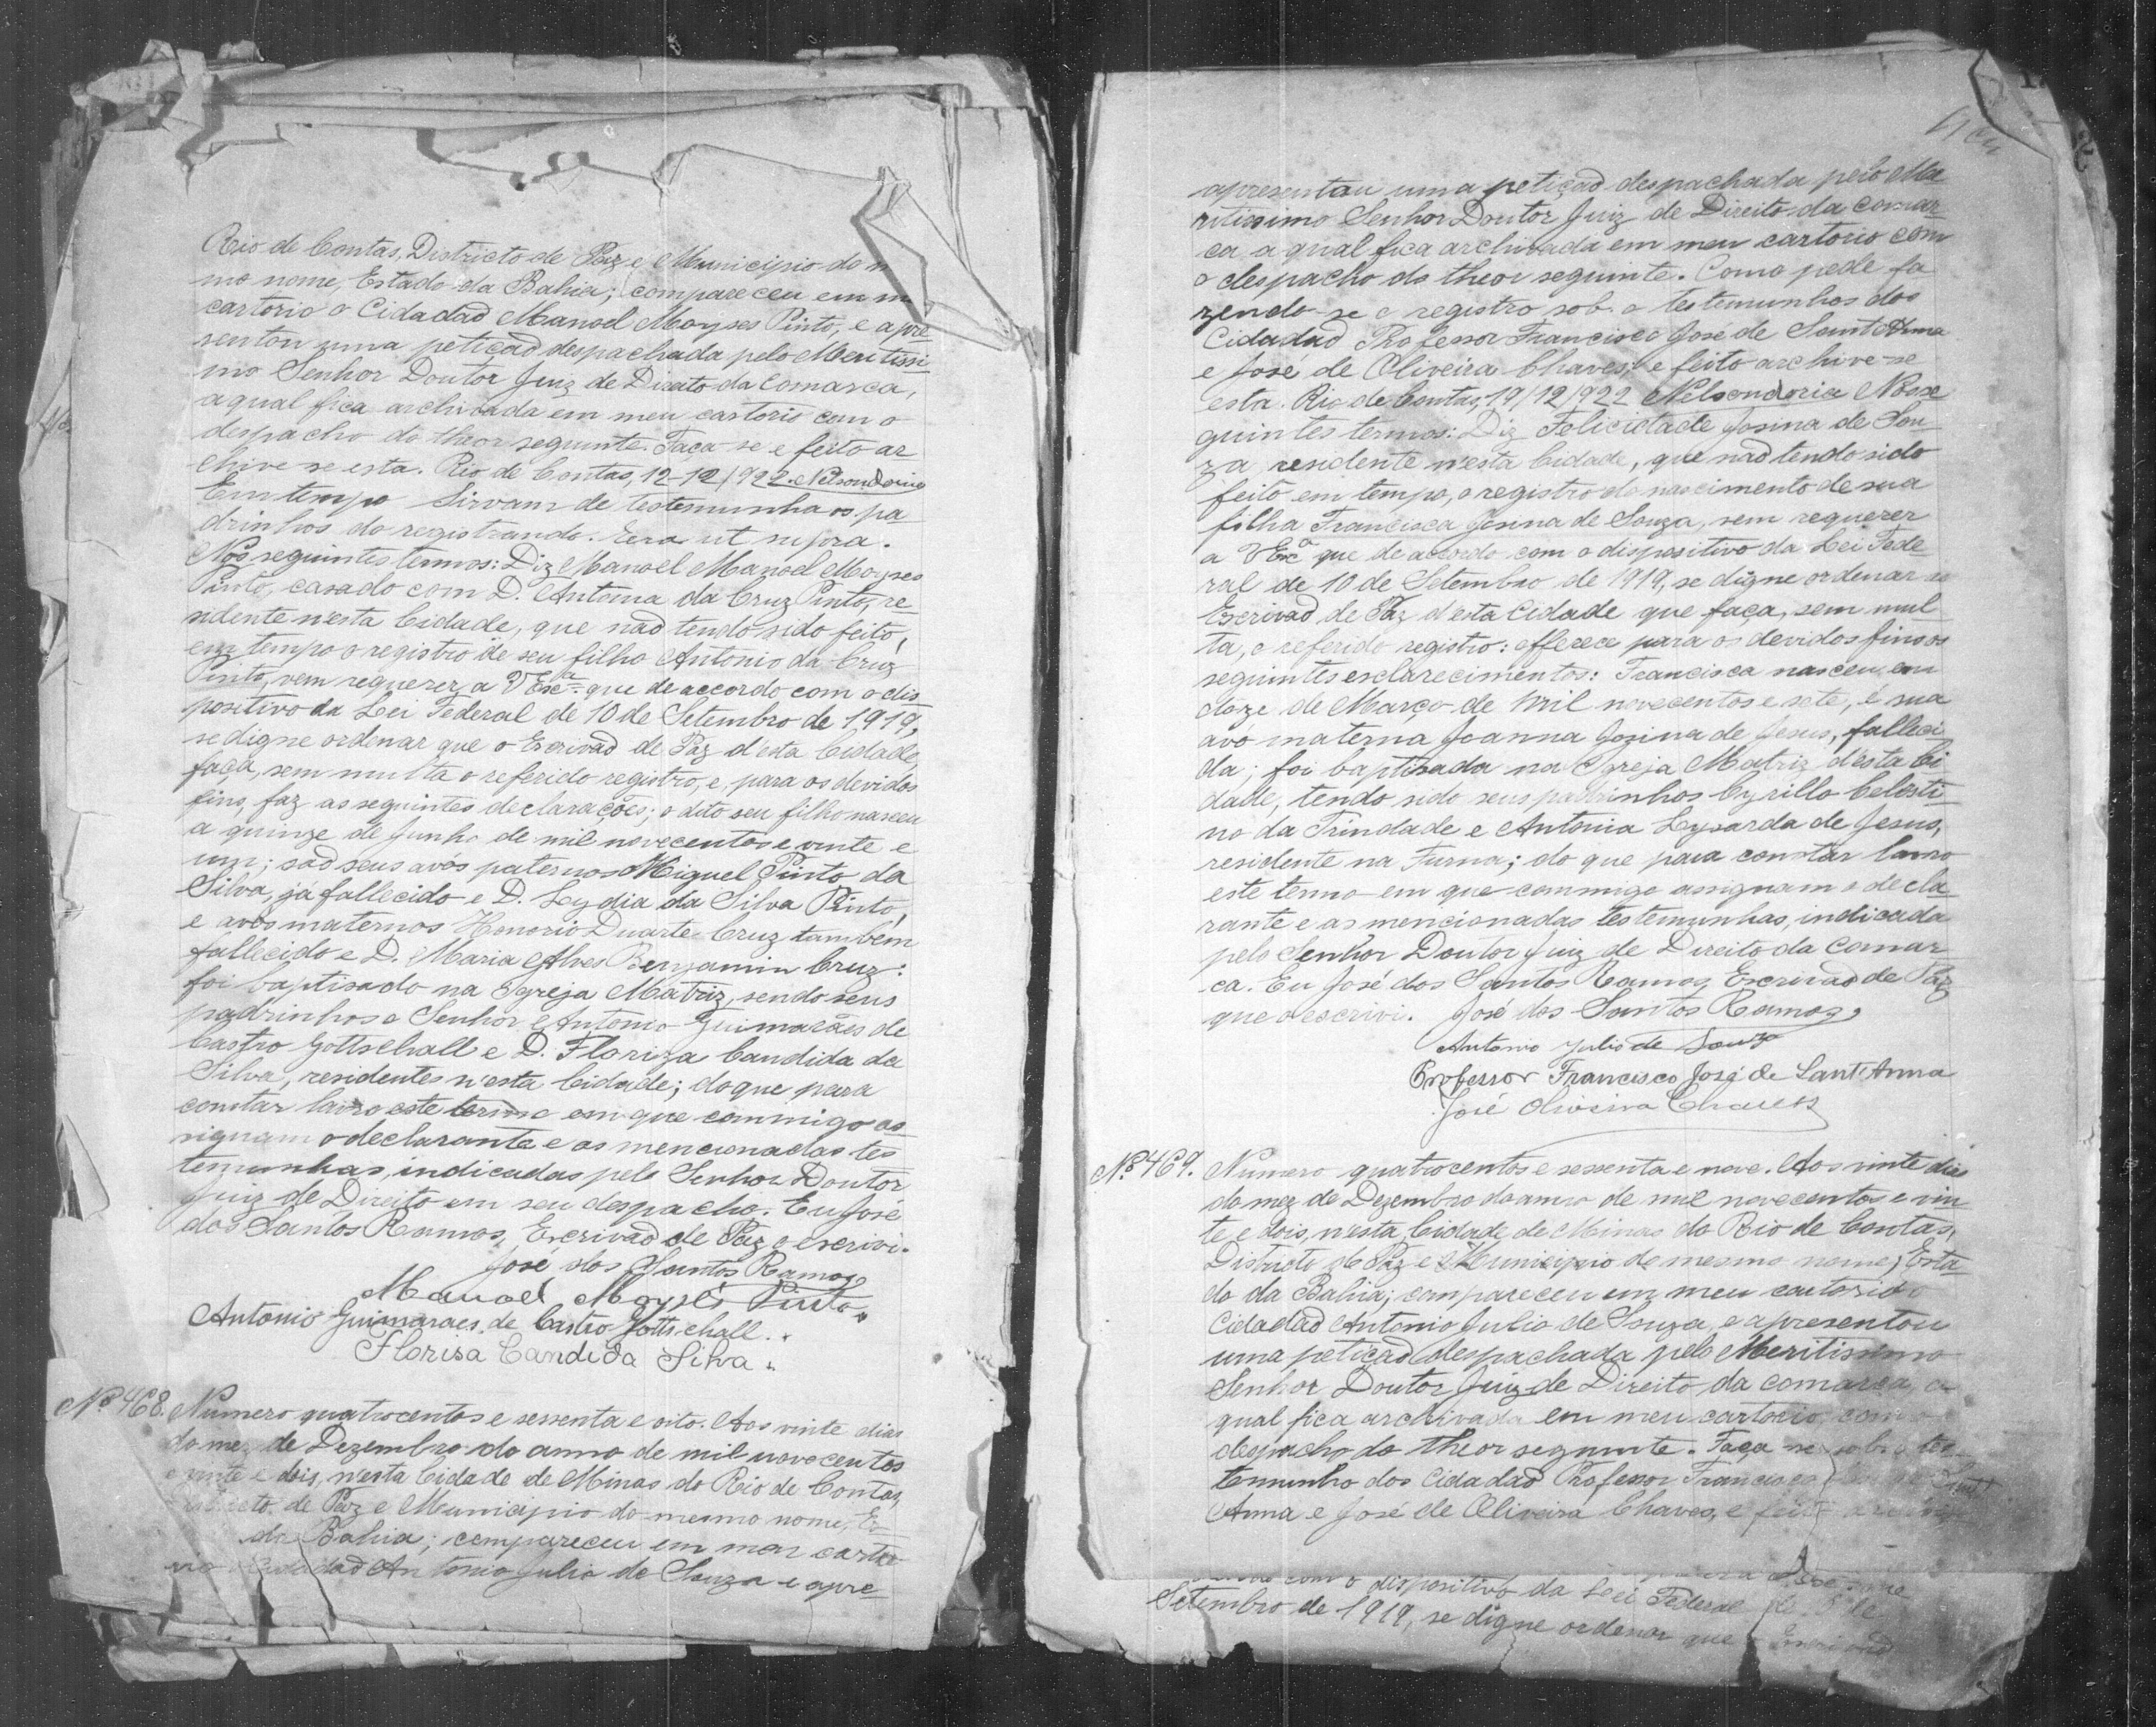 Rio de Contas, Districto de Paz e Municipio do m
mo nome, Estado da Bahia; compareceu em m
cartorio o Cidadão Manoel Moyses Pinto, e apre
sentou uma petição despachada pelo Meritissi
mo Senhor Doutor Juiz de Direito da Comarca,
a qual fica archivada em meu cartorio com o
despacho do theor seguinte. Faça-se e feito ar
chive-se esta. Rio de Contas, 12-12/922. Nelsondoria
Em tempo Sirvam de testemunha os pa
drinhos do registrando. Era ut supra.
Nos seguintes termos: Diz Manoel Manoel Moyses
Pinto, casado com D. Antonia da Cruz Pinto, re
sidente n'esta Cidade, que não tendo sido feito,
em tempo o registro de seu filho Antonio da Cruz
Pinto, vem requerer a V Exc.ª que de accordo com o dis
positivo da Lei Federal de 10 de Setembro de 1919,
se digne ordenar que o Escrivão de Paz d'esta Cidade,
faça, sem multa o referido registro, e, para os devidos
fins, faz as seguintes declarações; o dito seu filho nasceu
a quinze de Junho de mil novecentos e vinte e
um; são seus avós paternos Miguel Pinto da
Silva, já fallecido e D. Lydia da Silva Pinto,
e avós maternos Honorio Duarte Cruz tambem
fallecido e D. Maria Alves Benjamin Cruz:
foi baptisado na Igreja Matriz, sendo seus
padrinhos o Senhor Antonio Guimarães de
Castro Gottschall e D. Floriza Candida da
Silva, residentes n'esta Cidade; do que para
constar lavro este termo em que commigo as
signam o declarante e as mencionadas tes
temunhas, indicadas pelo Senhor Doutor
Juiz de Direito em seu despacho. Eu José
dos Santos Ramos, Escrivão de Paz o escrivi.
José dos Santos Ramos
Manoel Moysés Pinto
Antonio Guimaraes de Castro Gottschall.
Florisa Candida Silva.
Nº 468. Numero quatrocentos e sessenta e oito. Aos vinte dias
do mez de Dezembro do anno de mil novecentos
e vinte e dois, n'esta Cidade de Minas do Rio de Contas,
Districto de Paz e Municipio do mesmo nome, Es
da Bahia; compareceu em meu carto
rio o Cidadão Antonio Julio de Souza e apre
apresentou uma petição despachada pelo Me
ritissimo Senhor Doutor Juiz de Direito da comar
ca a qual fica archivada em meu cartorio com
o despacho do theor seguinte. Como pede fa
zendo-se o registro sob o testemunhos dos
Cidadão Professor Francisco José de Sant'Anna
e José de Oliveira Chaves, e feito archive-se
esta. Rio de Contas, 19/12/922 Nelsondoria Nos se
guintes termos: Diz Felicidade Josina de Sou
za, residente n'esta Cidade, que não tendo sido
feito em tempo, o registro do nascimento de sua
filha Francisca Josina de Souza, vem requerer
a V Exc.ª que de accordo com o dispositivo da Lei Fede
ral de 10 de Setembro de 1919, se digne ordenar ao
Escrivão de Paz d'esta Cidade que faça, sem mul
ta, o referido registro: offerece para os devidos fins os
seguintes esclarecimentos: Francisca nasceu em
doze de Março de mil novecentos e sete, é sua
avó materna Joanna Josina de Jesus, falleci
da; foi baptisada na Igreja Matriz d'esta Ci
dade, tendo sido seus padrinhos Cyrillo Celesti
no da Trindade e Antonia Lysarda de Jesus,
residente na Furna; do que para constar lavro
este termo em que commigo assignam o decla
rante e as mencionadas testemunhas, indicada
pelo Senhor Doutor Juiz de Direito da Comar
ca. Eu José dos Santos Ramos, Escrivão de Paz
que o escrivi. José dos Santos Ramos,
Antonio Julio de Souza
Professor Francisco José de Sant'Anna
José Oliveira Chaves
Nº 469. Numero quatrocentos e sessenta e nove. Aos vinte dias
do mez de Dezembro do anno de mil novecentos e vin
te e dois, n'esta Cidade de Minas do Rio de Contas,
Districto de Paz e Municipio do mesmo nome, Esta
do da Bahia; compareceu em meu cartorio o
Cidadão Antonio Julio de Souza, e apresentou
uma petição despachada pelo Meritissimo
Senhor Doutor Juiz de Direito da comarca, a
qual fica archivada em meu cartorio com o
despacho do theor seguinte. Faça-se sob o tes
temunho dos Cidadão Professor Francisco
Anna e José de Oliveira Chaves, e feito archive
com o dispositivo da Lei Federal de
Setembro de 1919, se digne ordenar que o Escrivão